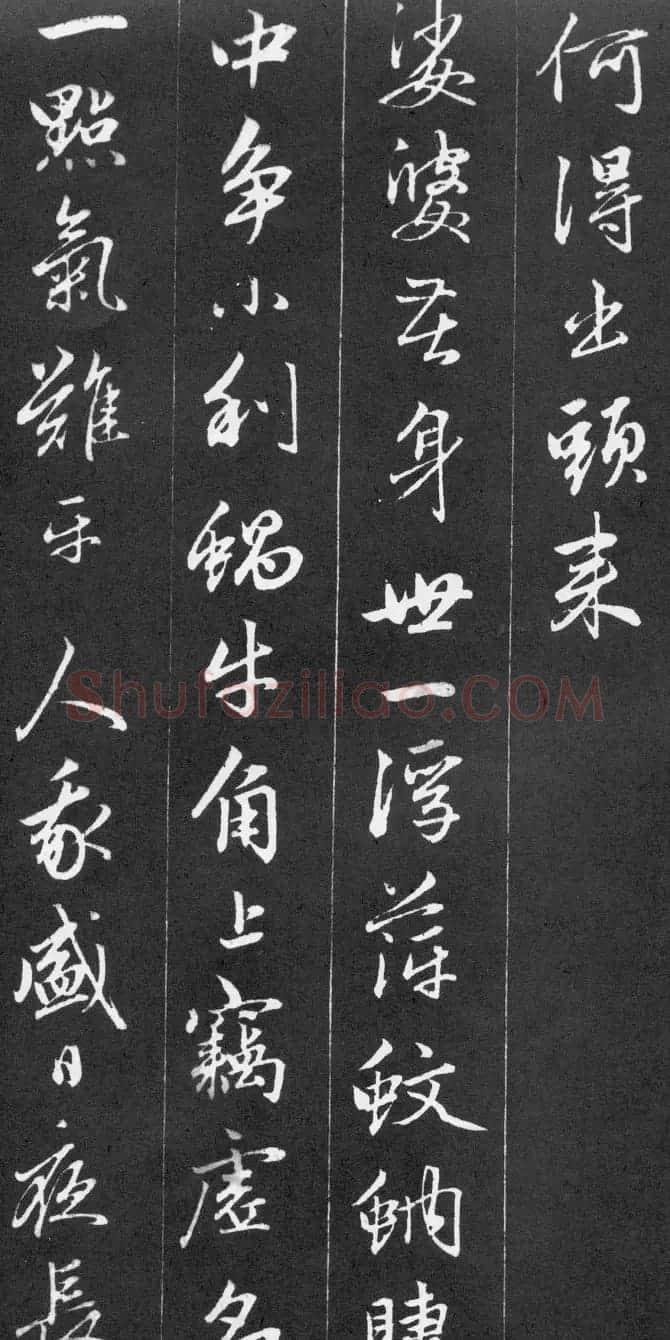 何得出頭来
娑婆苦身世一浮萍蚊蚋睫
中争小利蝸牛角上竊虚名
一點氣難平人我盛日夜長
Shufaziliao.COM